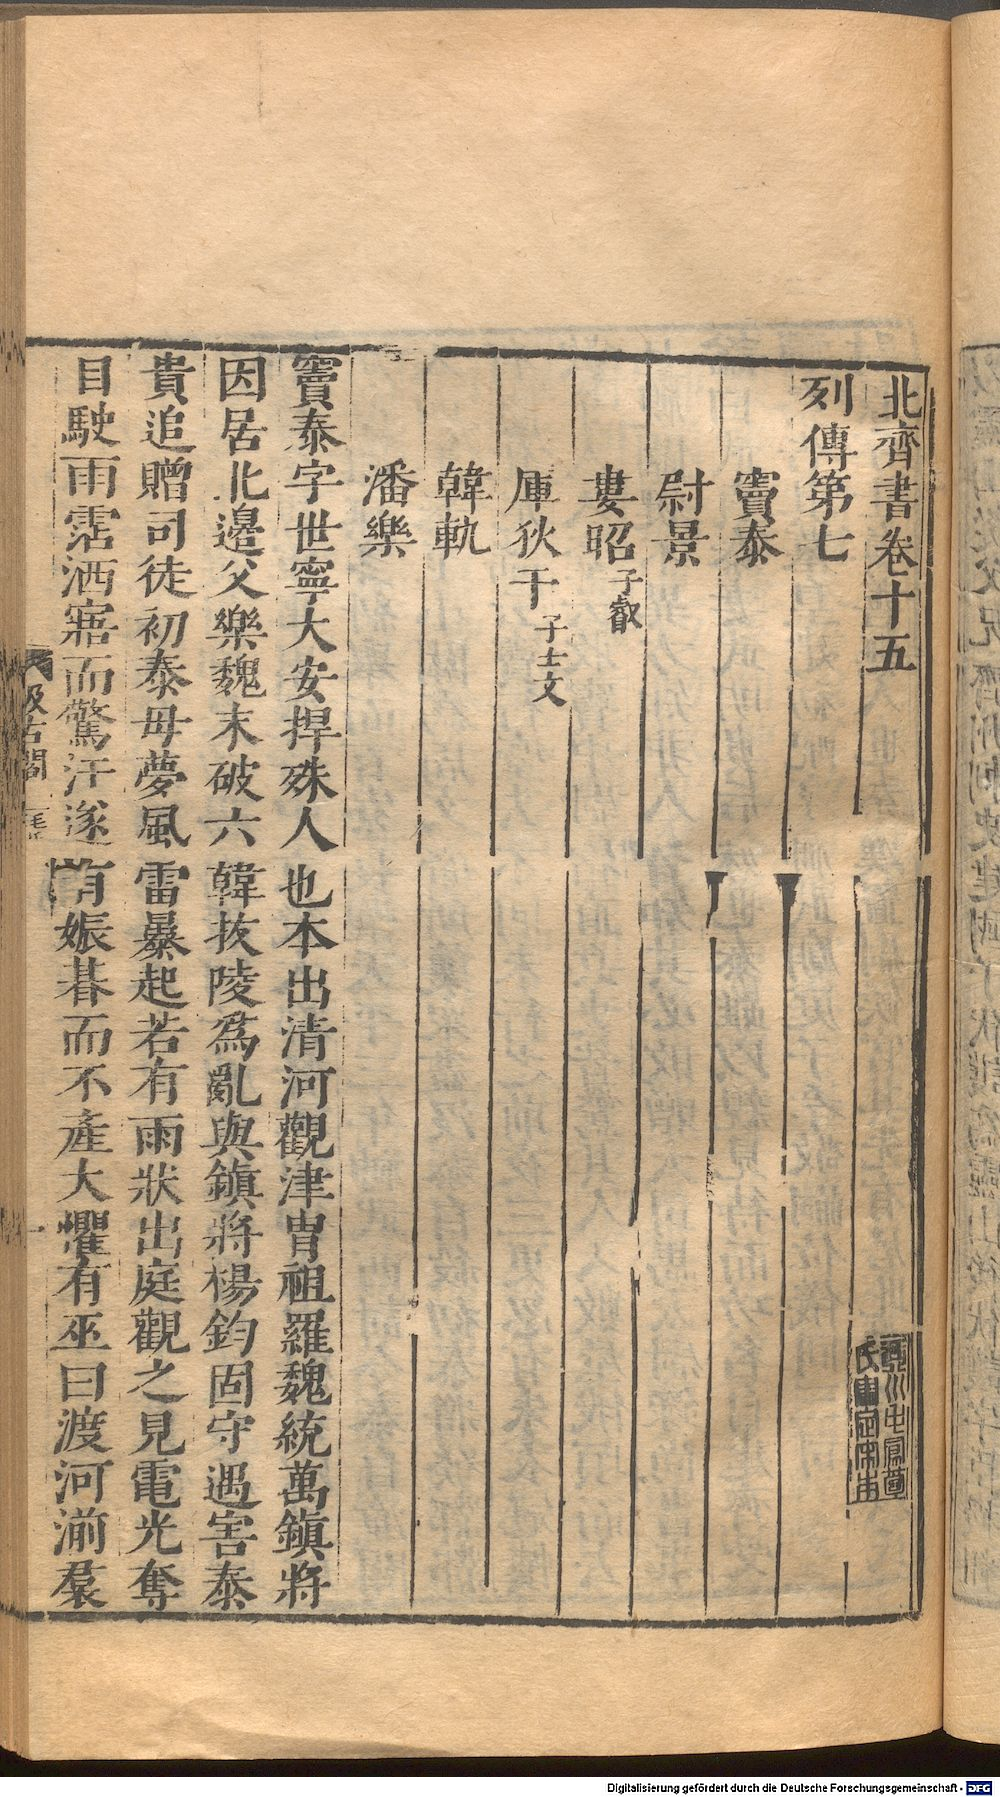 北齊書卷十五
列傳第七
竇泰
尉景
婁昭 子叡
厙狄干 子士文
韓軌
潘樂
竇泰字世寧大安捍殊人也本出清河觀津冑祖羅魏統萬鎮將
因居北邊父樂魏末破六韓拔陵爲亂與鎮將楊鈞固守遇害泰
貴追贈司徒初泰母夢風雷暴起若有雨狀出庭觀之見電光奪
目駛雨霑洒寤而驚汗遂有娠朞而不產大懼有巫曰渡河湔羣
汲古閣
毛氏
一
Digitalisierung gefördert durch die Deutsche Forschungsgemeinschaft - DFG